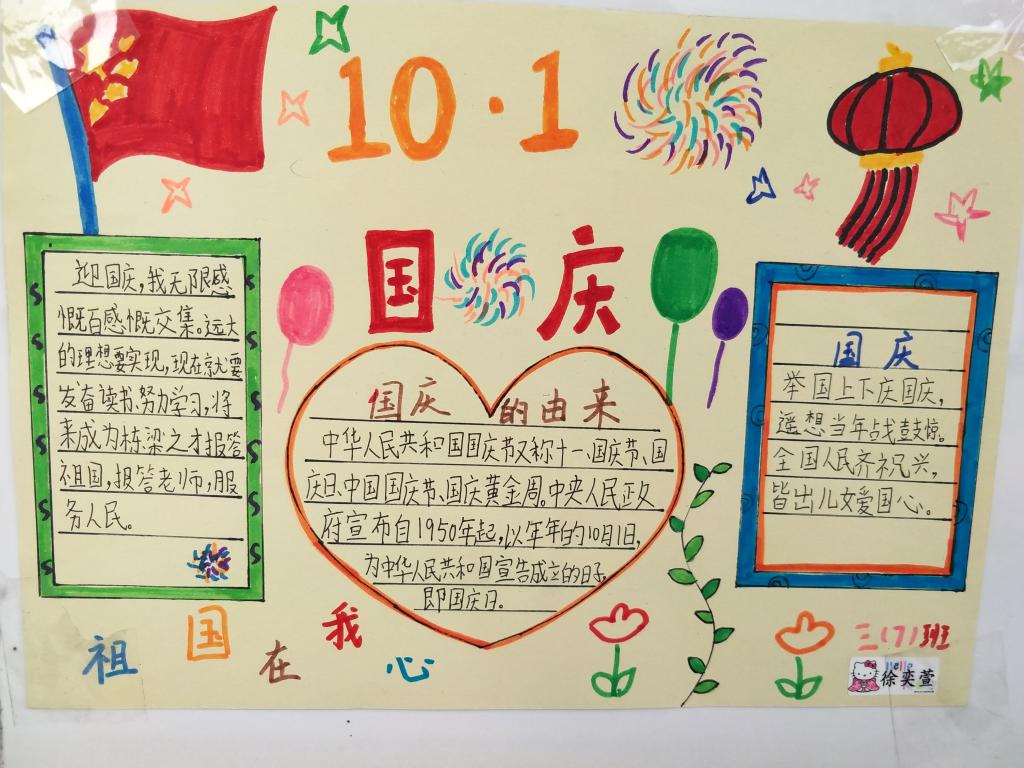 10·1
国庆
迎国庆,我无限感
慨百感慨交集。远大
的理想要实现,现在就要
发奋读书,努力学习,将
来成为栋梁之才报答
祖国,报答老师,服
务人民。
国庆 的由来
中华人民共和国国庆节又称十一、国庆节、国
庆日、中国国庆节、国庆黄金周。中央人民政
府宣布自1950年起,以年年的10月1日,
为中华人民共和国宣告成立的日子,
即国庆日。
国庆
举国上下庆国庆,
遥想当年战鼓惊。
全国人民齐祝兴,
皆出儿女爱国心。
祖国在我心
三(7)班
Hello
徐奕萱